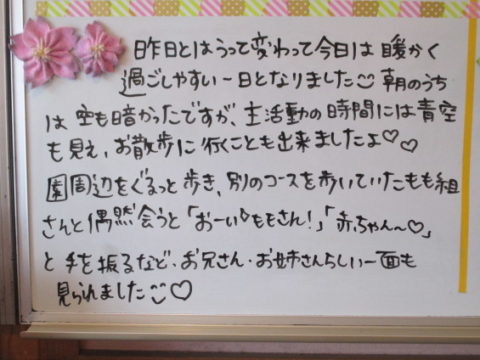 昨日とはうって変わって今日は暖かく
過ごしやすい一日となりました☺ 朝のうち
は空も暗かったですが、主活動の時間には青空
も見え、お散歩に行くことも出来ましたよ♡♡
園周辺をぐるっと歩き、別のコースを歩いていたもも組
さんと偶然会うと「おーい!ももさん!」「赤ちゃん〜♡」
と手を振るなど、お兄さん・お姉さんらしい一面も
見られました☺♡